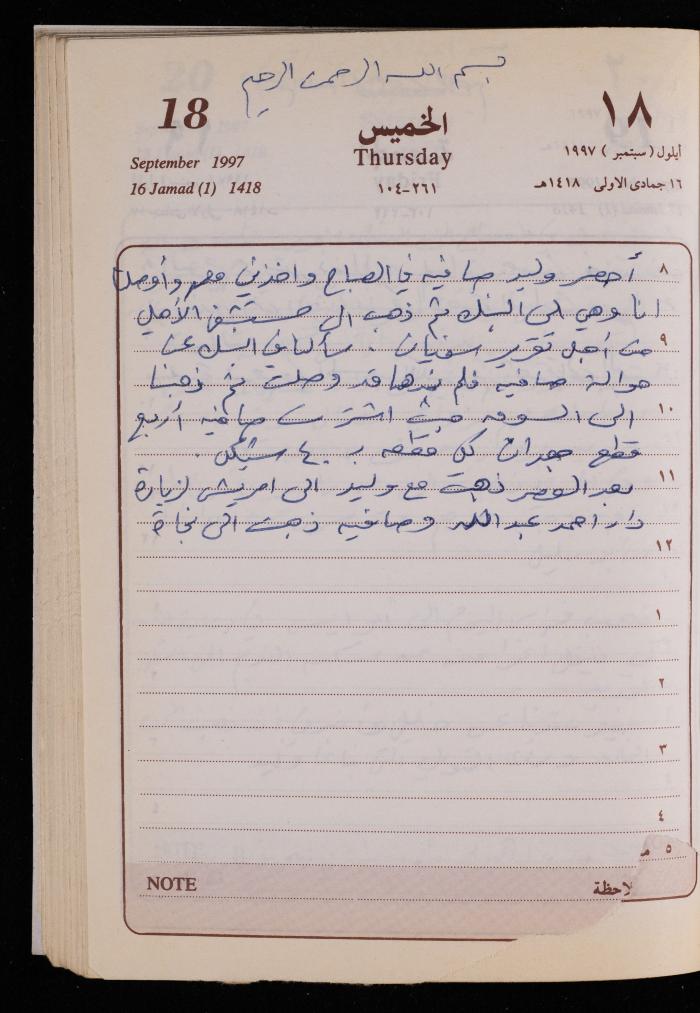 بسم الله الرحمن الرحيم
18
الخميس
١٨
September 1997
Thursday
أيلول (سبتمبر) ١٩٩٧
16 Jamad (1) 1418
٢٦١-١٠٤
١٦ جمادى الاولى ١٤١٨هـ
٨
أحضر وليد صافيه في الصباح واخذني معه وأوصلنا
انا وهي الى البنك ثم ذهب الى مستشفى الأهلي
٩
من أجل تقرير سفيان . سألنا في البنك عن
حوالة صافيه فلم نجدها قد وصلت ثم ذهبنا
١٠
الى السوق حيث اشترت صافيه أربع
قطع كل قطعه ب ٤٠ شيكل .
١١
بعد العصر ذهبت مع وليد الى امريش لزيارة
دار احمد عبد الله وصافيه ذهبت الى نجاة
١٢
١
٢
٣
٤
٥ م
NOTE
لاحظة